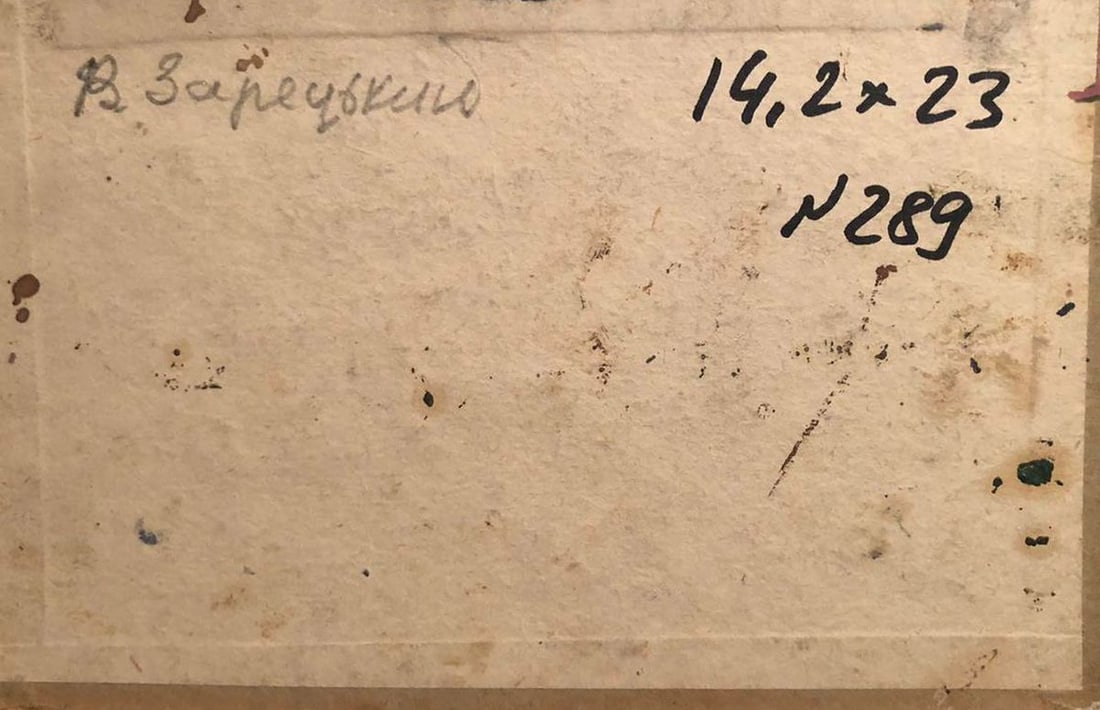 В Зарецькию
14,2 x 23
N 289